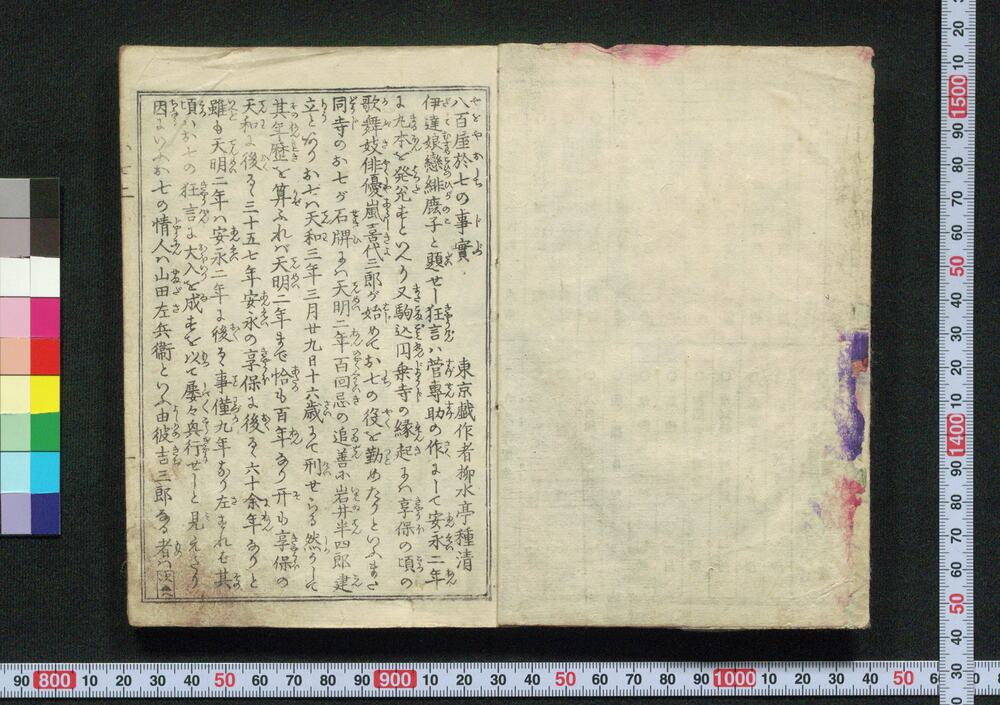 八百屋於七の事實　東京戯作者柳水亭種清
伊達娘戀緋鹿子と題せし狂言ハ菅專助の作にして安永二年
に丸本を発兌すといへり又駒込円乗寺の縁起にハ享保の頃の
歌舞妓俳優嵐喜代三郎が始めてお七の役を勤めたりといふまた
同寺のお七が石牌にハ天明二年百回忌の追善に岩井半四郎建
立とありお七ハ天和三年三月廿九日十六歳にて刑せらる然して
其年歴を算ふれバ天明二年まで恰も百年あり开も享保の
天和に後るゝ三十五七年安永の享保に後るゝ六十余年ありと
雖も天明二年ハ安永二年に後るゝ事僅九年あり左すれを其
頃ハお七の狂言に大入を成すを以て屡々興行せしと見えたり
因にいふお七の情人ハ山田左兵衞といふ由彼吉三郎ある者ハ